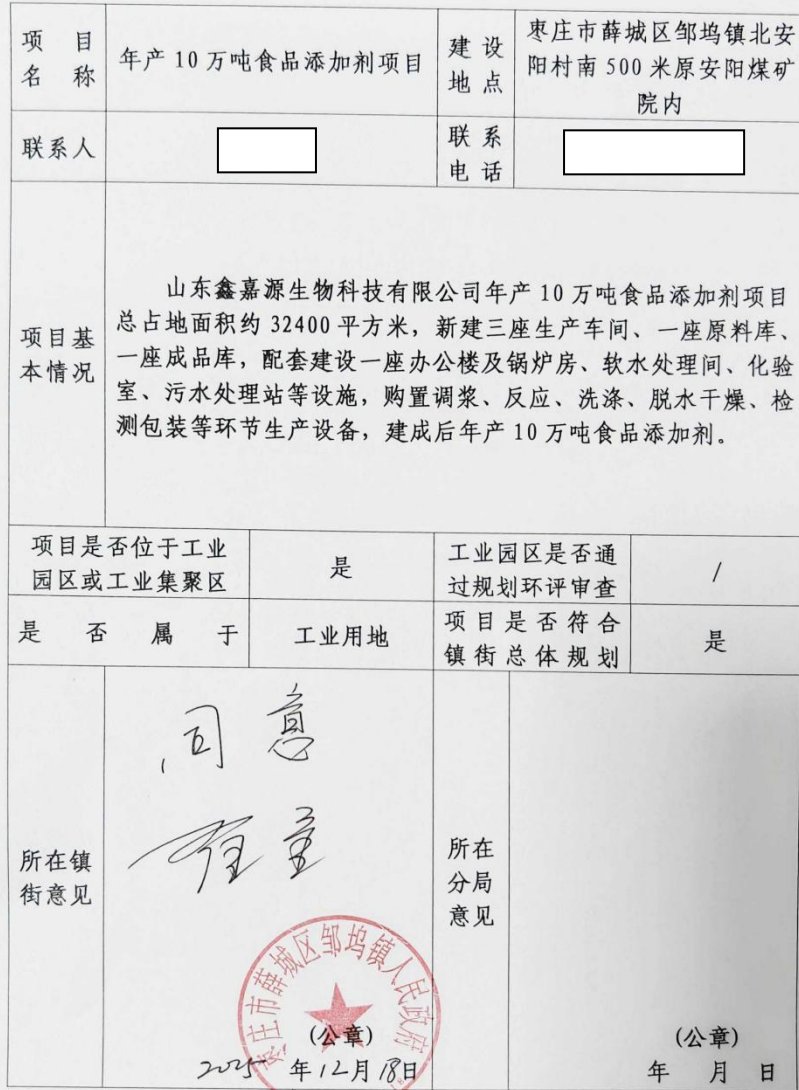 项 目
名 称
年产 10 万吨食品添加剂项目
建 设
地 点
枣庄市薛城区邹坞镇北安
阳村南 500 米原安阳煤矿
院内
联系人
联 系
电 话
项目基
本情况
山东鑫嘉源生物科技有限公司年产 10 万吨食品添加剂项目
总占地面积约 32400 平方米，新建三座生产车间、一座原料库、
一座成品库，配套建设一座办公楼及锅炉房、软水处理间、化验
室、污水处理站等设施，购置调浆、反应、洗涤、脱水干燥、检
测包装等环节生产设备，建成后年产 10 万吨食品添加剂。
项目是否位于工业
园区或工业集聚区
是
工业园区是否通
过规划环评审查
/
是 否 属 于
工业用地
项目是否符合
镇街总体规划
是
所在镇
街意见
同意
枣庄市薛城区邹坞镇人民政府
(公章)
2025 年 12 月 18 日
所在
分局
意见
(公章)
年 月 日